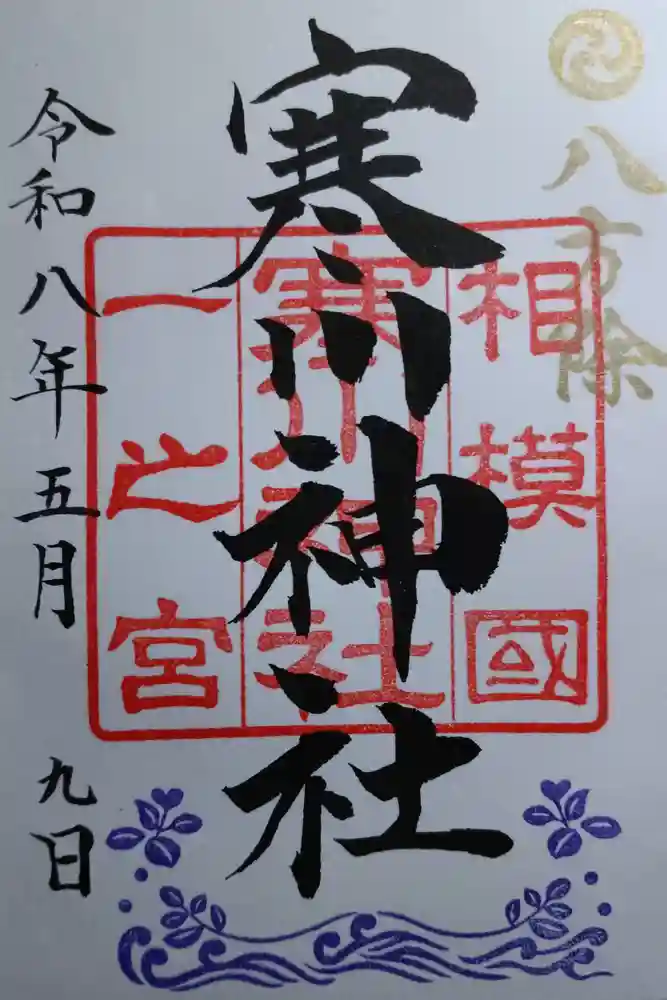 八方除
相模國
寒川神社
一之宮
寒川神社
令和八年五月
九日